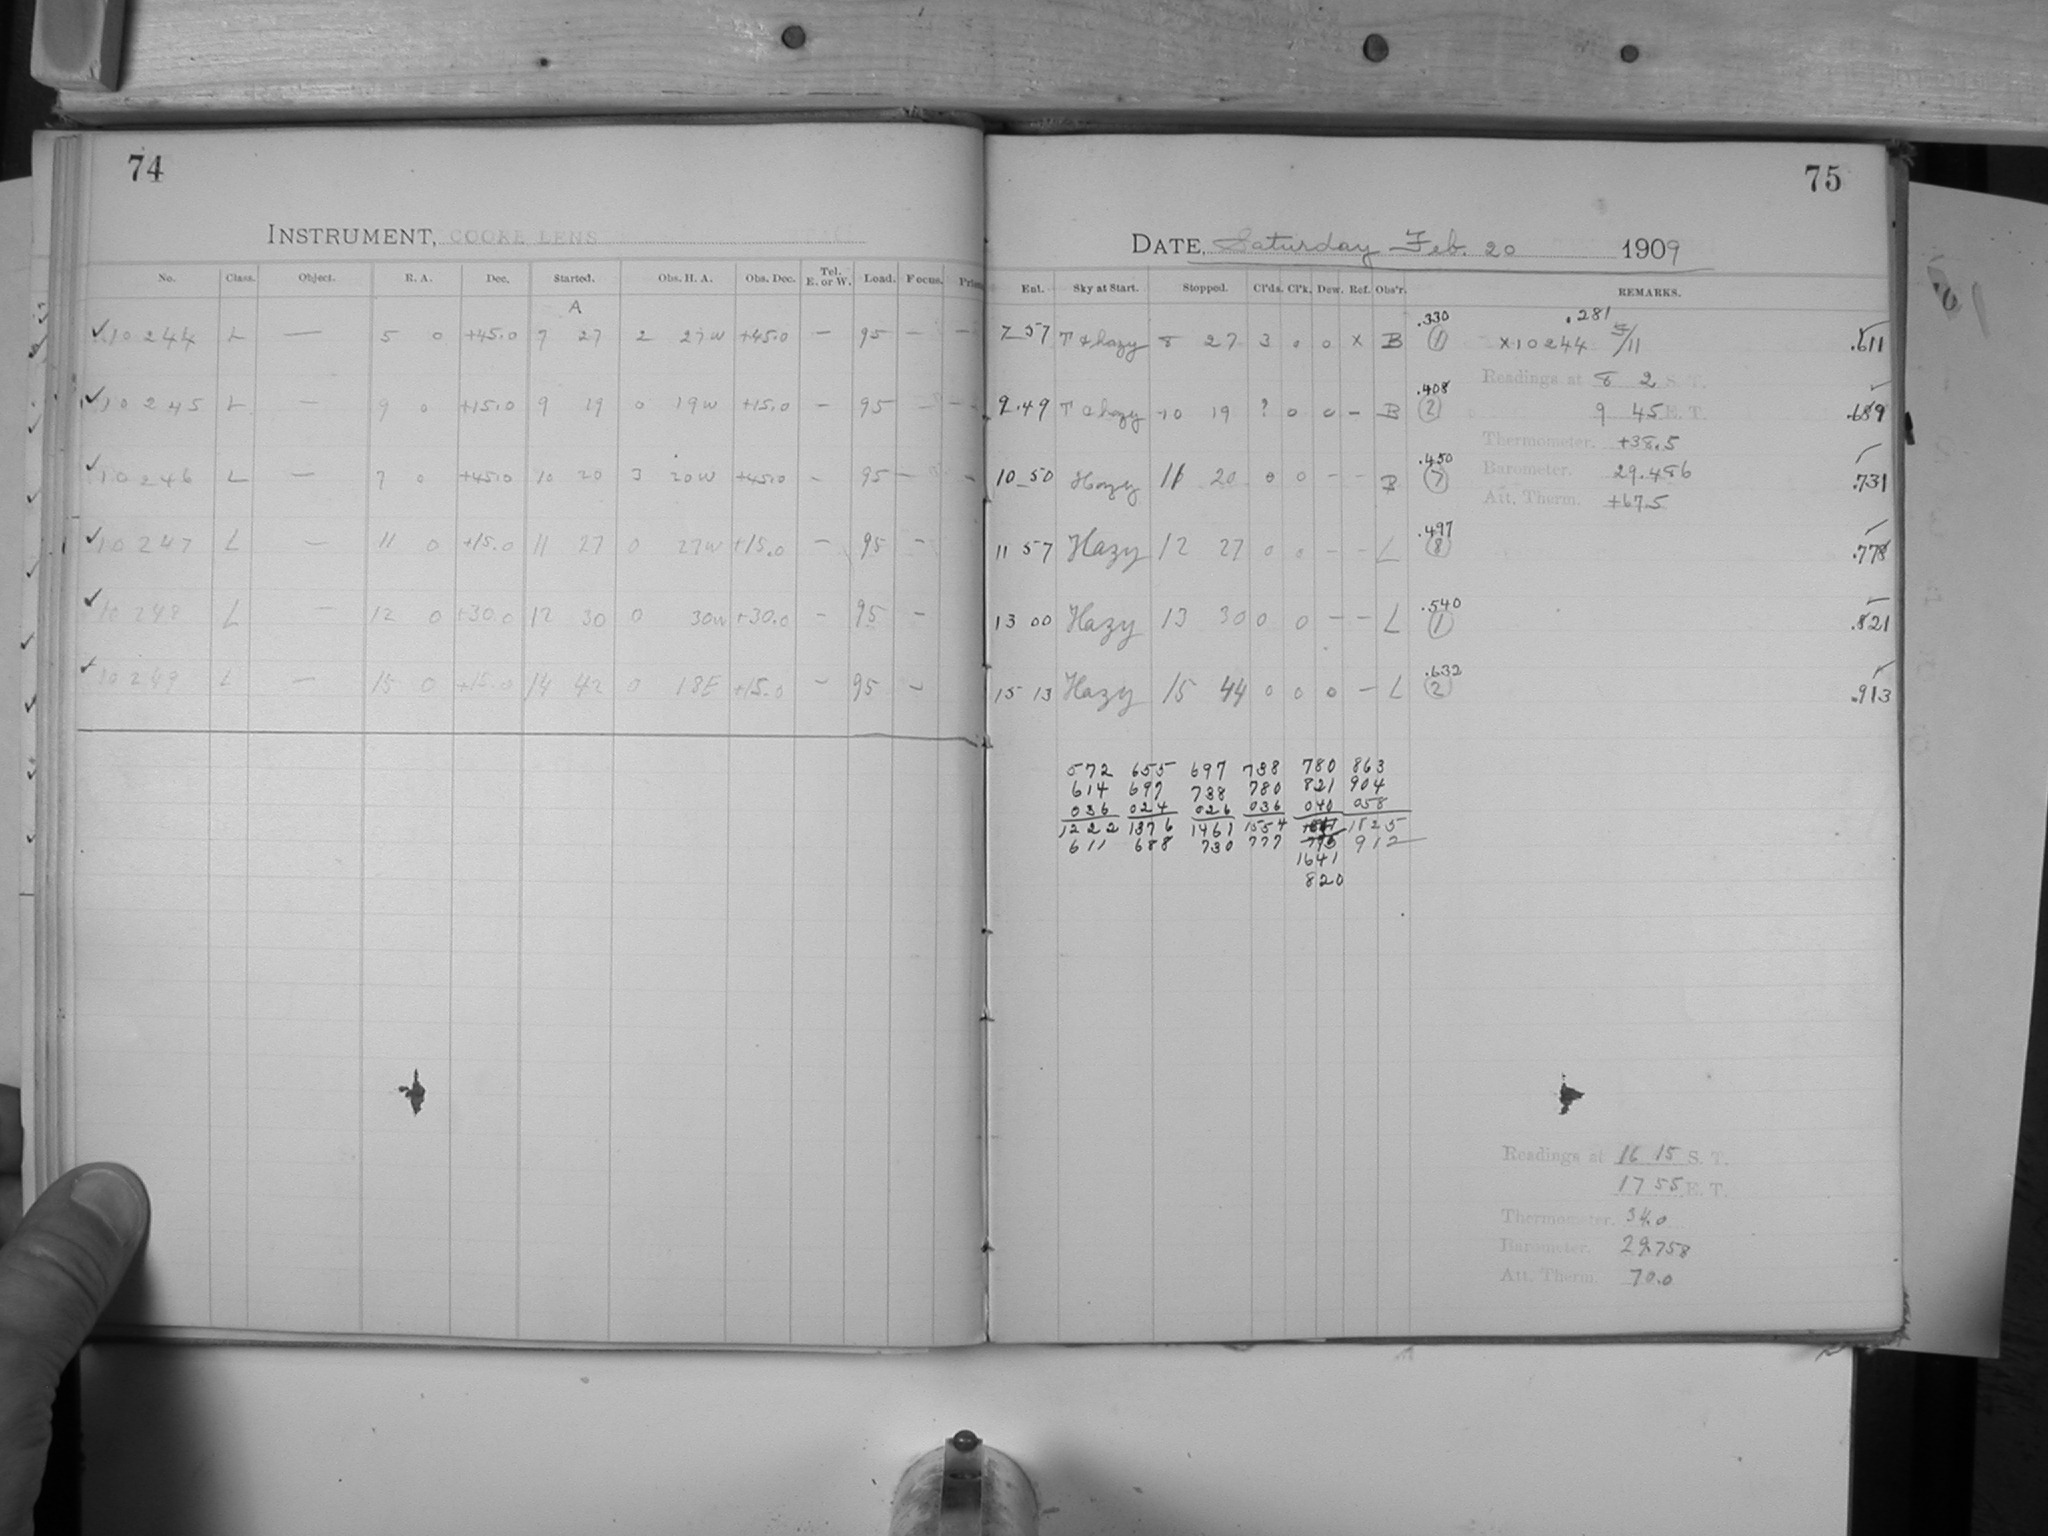 74
INSTRUMENT, COOKE LENS
No. Class. Object. R. A. Dec. Started. Obs. H. A. Obs. Dec. Tel. E. or W. Load. Focus.
A
✓10244 L — 5 0 +45.0 7 27 2 27W +45.0 — 95 — —
✓10245 L — 9 0 +15.0 9 19 0 19W +15.0 — 95 — —
✓10246 L — 7 0 +45.0 10 20 3 20W +45.0 — 95 — —
✓10247 L — 11 0 +15.0 11 27 0 27W +15.0 — 95 —
✓10248 L — 12 0 +30.0 12 30 0 30W +30.0 — 95 —
✓10249 L — 15 0 +15.0 14 42 0 18E +15.0 — 95 —
75
DATE, Saturday Feb. 20 1909
Ent. Sky at Start. Stopped. Cl'ds. Cl'k. Dew. Ref. Obs'r. REMARKS.
.330 .281
7 57 T & hazy 8 27 3 0 0 x B 1 x10244 5/11 .611
Readings at 8 2 S. T.
.408
9.49 T & hazy 10 19 ? 0 0 — B 2 9 45 E. T. .689
Thermometer. +38.5
.450
10 50 Hazy 11 20 0 0 — — B 7 Barometer. 29.486 .731
Att. Therm. +67.5
.497
11 57 Hazy 12 27 0 0 — — L 8 .778
.540
13 00 Hazy 13 30 0 0 — — L 1 .821
.632
15 13 Hazy 15 44 0 0 0 — L 2 .913
572 655 697 738 780 863
614 697 738 780 821 904
036 024 026 036 040 058
1222 1376 1461 1554 1825
611 688 730 777 912
1641
820
Readings at 16 15 S. T.
17 55 E. T.
Thermometer. 34.0
Barometer. 29.758
Att. Therm. 70.0